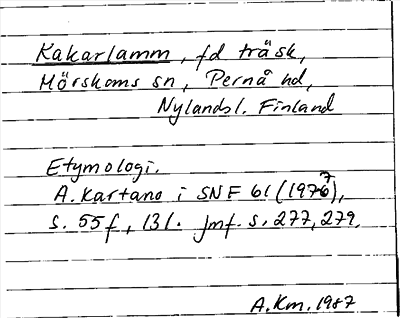 Kakarlamm, fd träsk,
Mörskoms sn, Pernå hd,
Nylandsl. Finland
Etymologi.
A. Kartano i SNF 61 (1976),
7
s. 55 f, 131. jmf. s. 277, 279.
A.Km. 1987